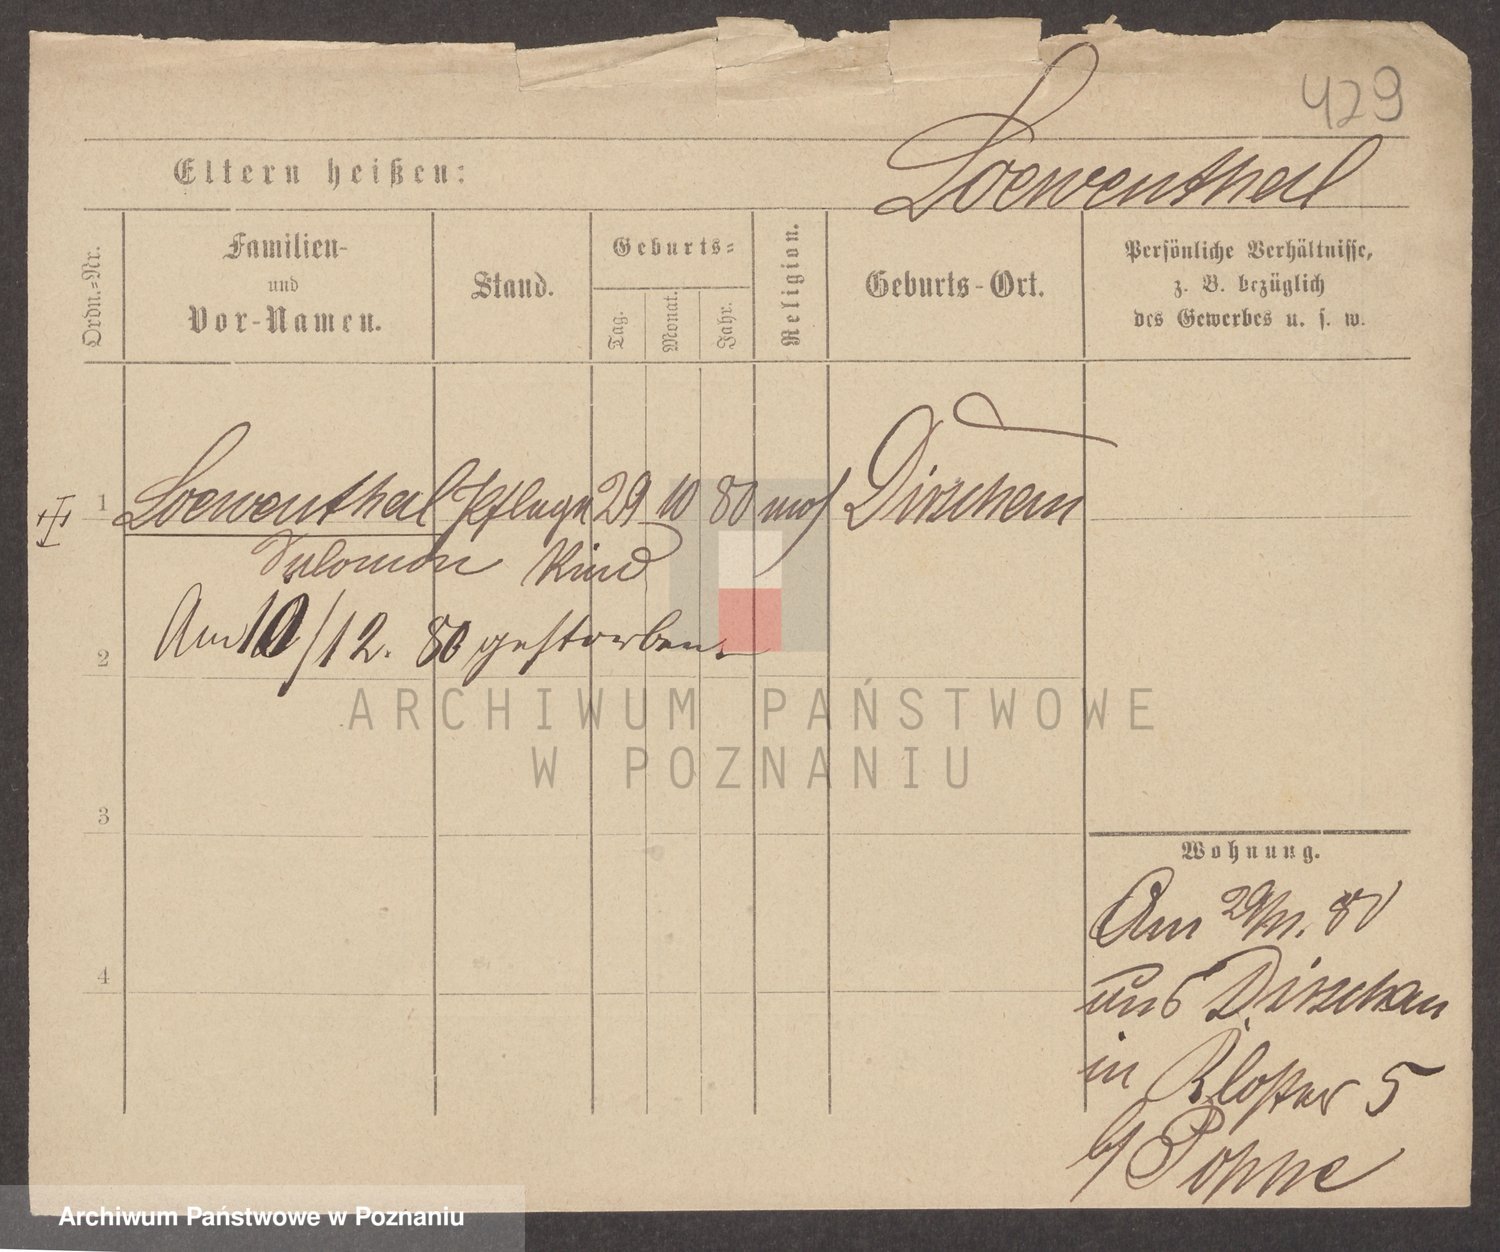 429
Loewentheil
Eltern heißen:
Ordn.=Nr.
Familien-
und
Vor-Namen.
Stand.
Geburts=
Tag.
Monat.
Jahr.
Religion.
Geburts-Ort.
Persönliche Verhältnisse,
z. B. bezüglich
des Gewerbes u. s. w.
1 Loewentheil Pflege 29 10 80 mos Dirschau
Salomon Kind
Am 10/12. 80 gestorben.
2
3
4
ARCHIWUM PAŃSTWOWE
W POZNANIU
Wohnung.
Am 29/11. 80
aus Dirschau
in Kloster 5
b/
Archiwum Państwowe w Poznaniu